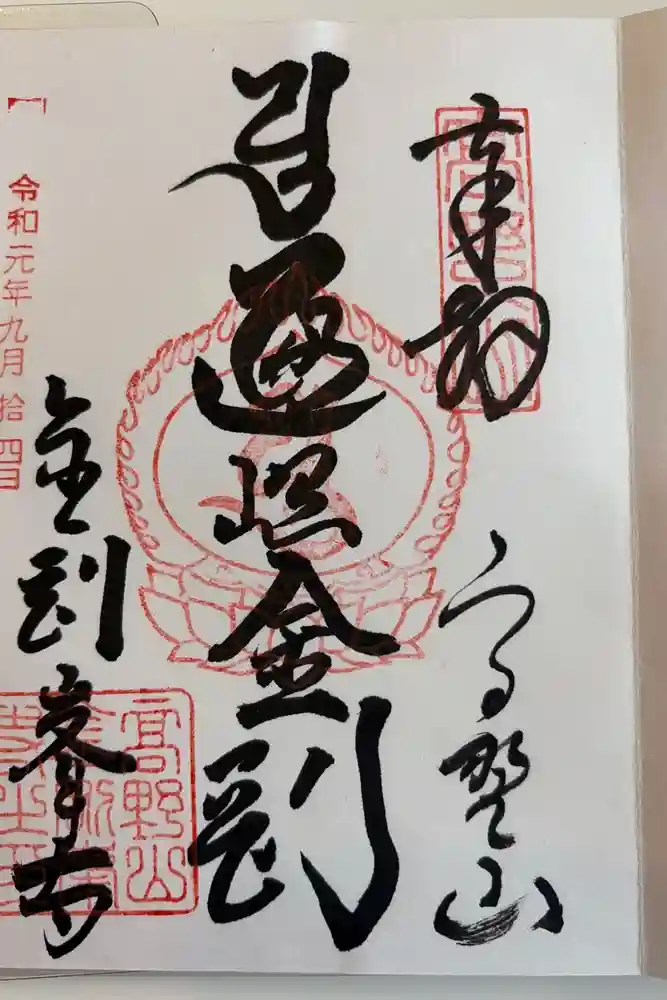 奉拝
高野山
遍照金剛
金剛峯寺
令和元年九月拾四日
高野山